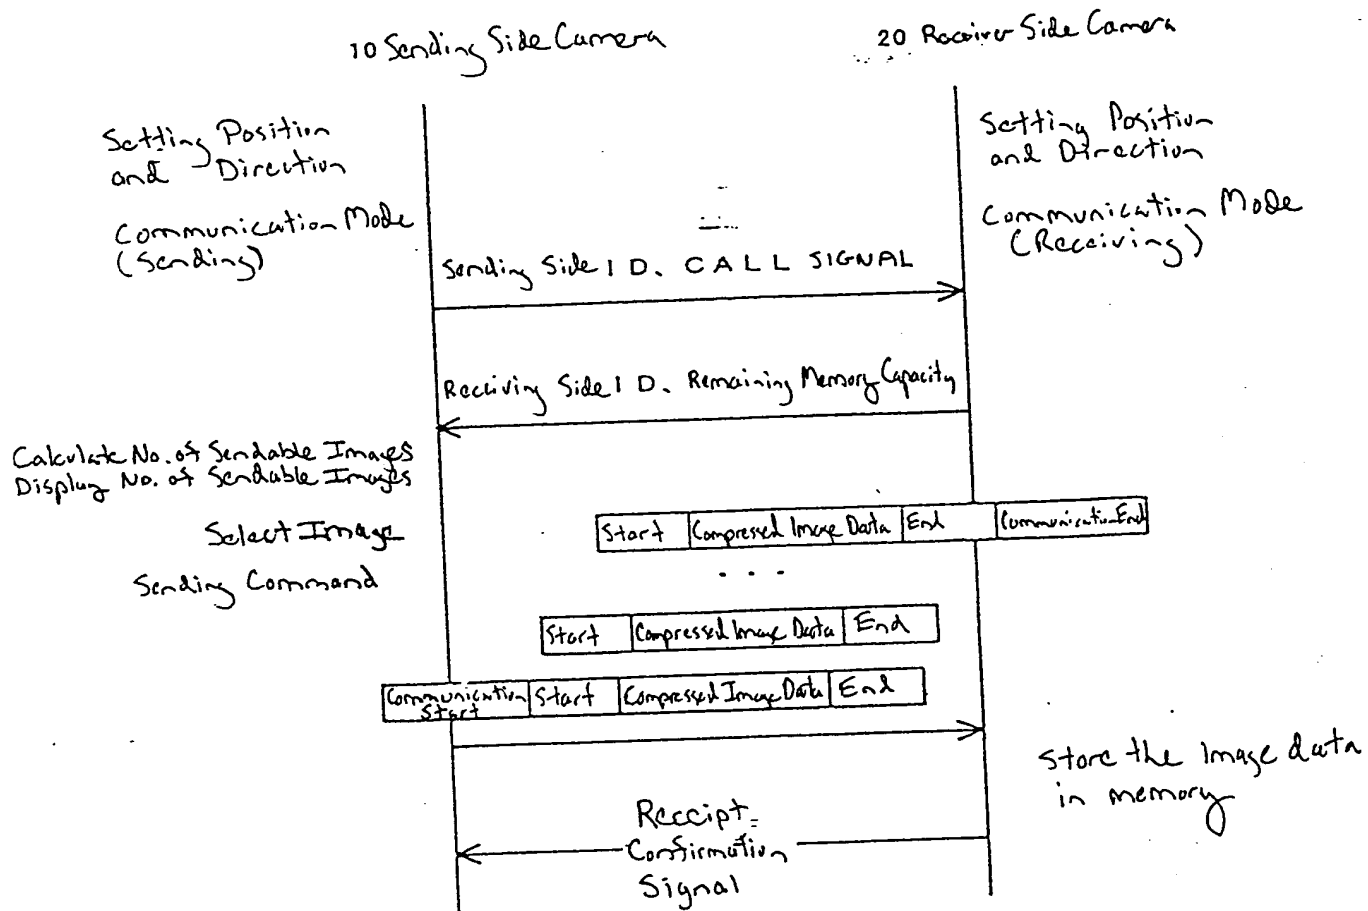 10 Sending Side Camera
20 Receiver Side Camera
Setting Position
and Direction
Setting Position
and Direction
Communication Mode
(Sending)
Communication Mode
(Receiving)
Sending Side ID. CALL SIGNAL
Receiving Side ID. Remaining Memory Capacity
Calculate No. of Sendable Images
Display No. of Sendable Images
Select Image
Start Compressed Image Data End Communication End
Sending Command
. . .
Start Compressed Image Data End
Communication
Start
Start Compressed Image Data End
Store the Image data
in memory
Receipt
Confirmation
Signal